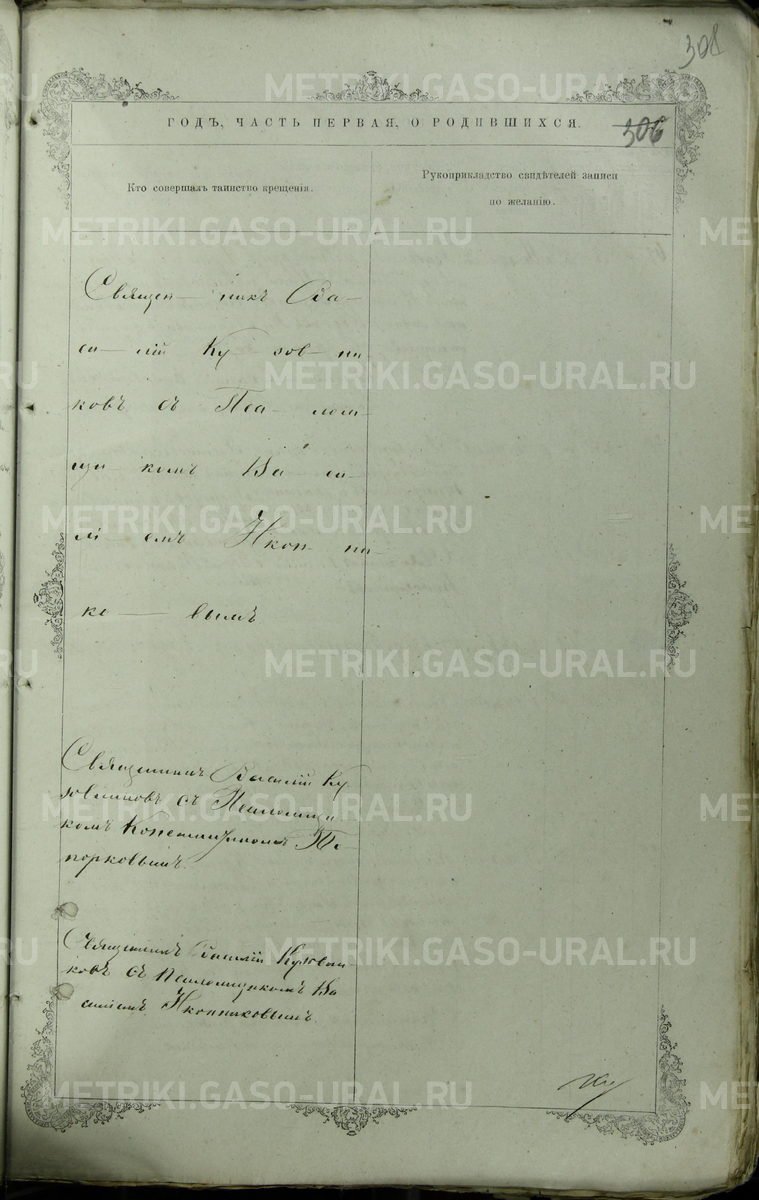 308
ГОДЪ, ЧАСТЬ ПЕРВАЯ, О РОДИВШИХСЯ.
306
Кто совершалъ таинство крещенія.
Рукоприкладство свидѣтелей записи
по желанію.
Священ — никъ Ва-
си — лій Ку зов — ни
ковъ съ Пса — лом
щи комъ Ва си
лі емъ Икон ни
ко — вымъ
Священникъ Василій Ку
зовниковъ съ Псаломщи
комъ Константиномъ То
порковымъ.
Священникъ Василій Кузовни
ковъ съ Псаломщикомъ Ва
силіемъ Иконниковымъ.
METRIKI.GASO-URAL.RU